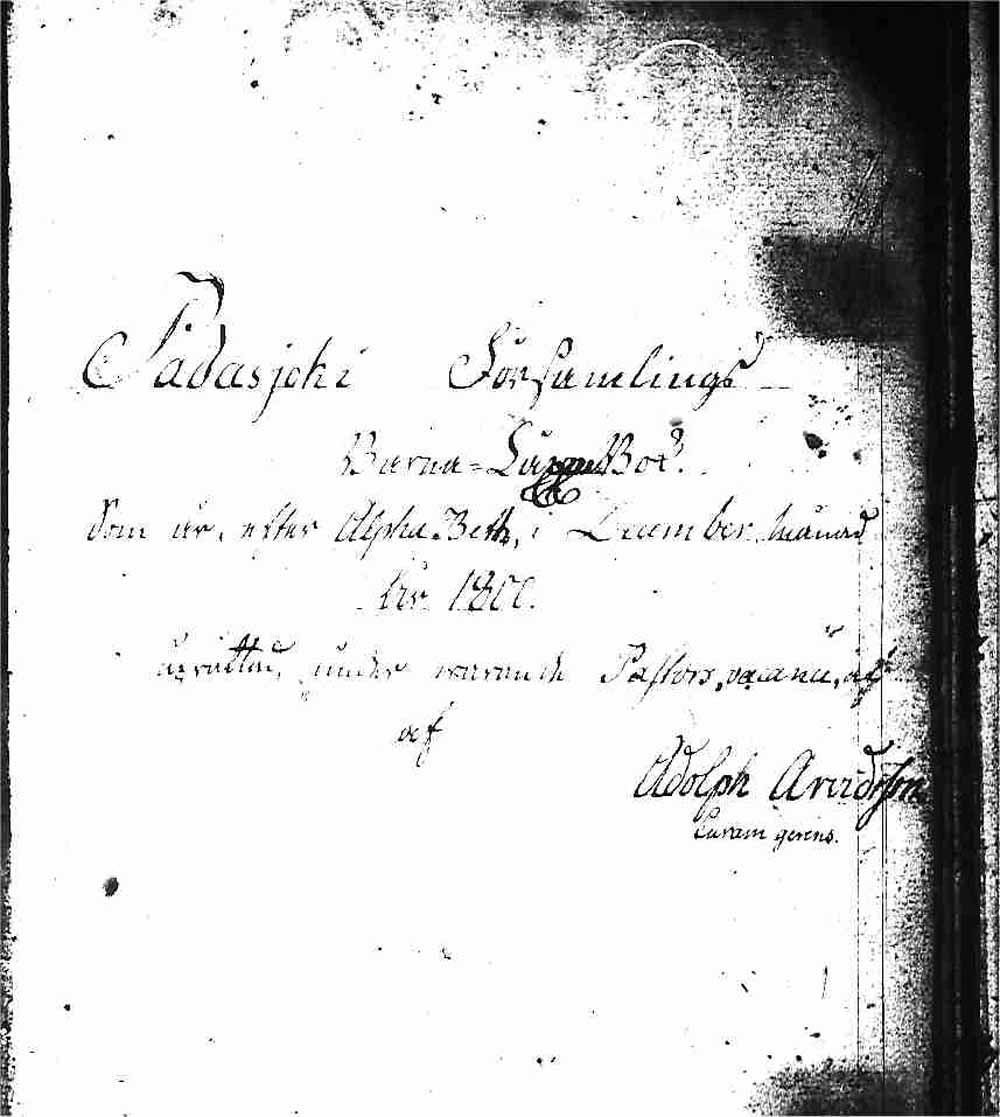 Padasjoki Församlings
Barna-Längd Bok.
Som är, efter Alpha-Beth, i December månad
År 1800.
uprättad, under warande Pastors vacance, af
af
Adolph Arvidsson
Curam gerens.